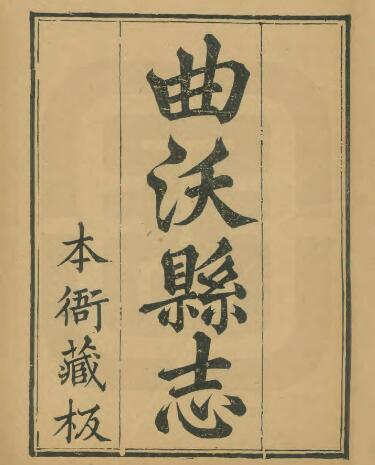 曲沃縣志
本衙藏板